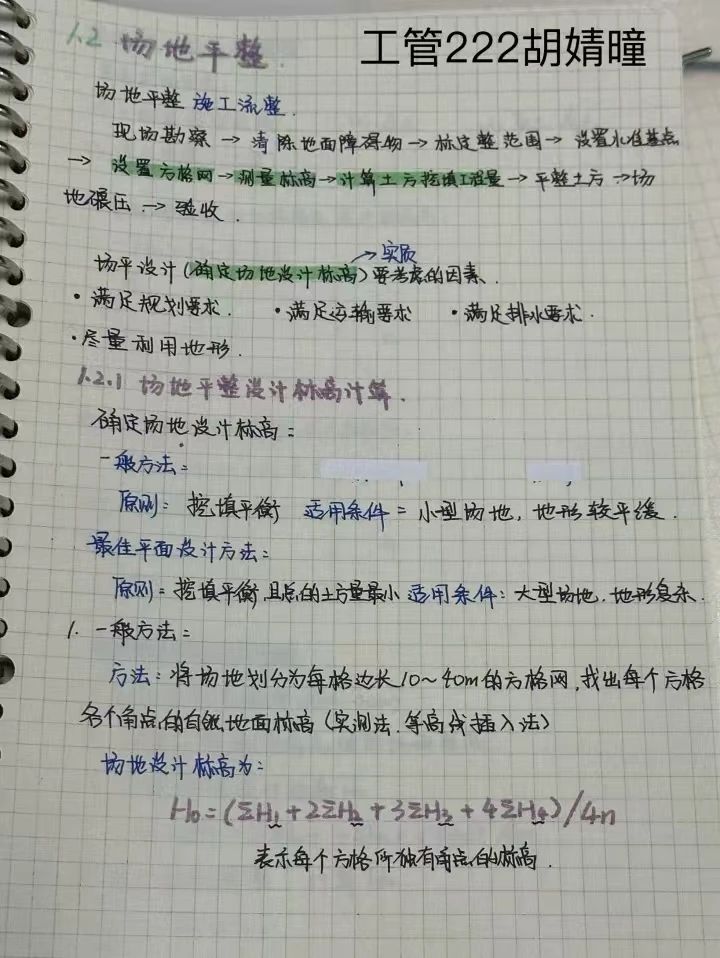 工管222胡婧曈
1.2 场地平整.
场地平整 施工流整.
现场勘察 → 清除地面障碍物 → 标定整范围 → 设置水准基点
→ 设置方格网 → 测量标高 → 计算土方挖填工程量 → 平整土方 → 场
地碾压 → 验收.
→ 实质
场平设计(确定场地设计标高)要考虑的因素.
· 满足规划要求. · 满足运输要求 · 满足排水要求.
· 尽量利用地形.
1.2.1 场地平整设计标高计算.
确定场地设计标高:
一般方法:
原则: 挖填平衡 适用条件: 小型场地, 地形较平缓.
最佳平面设计方法:
原则: 挖填平衡,且总的土方量最小 适用条件: 大型场地, 地形复杂.
1. 一般方法:
方法: 将场地划分为每格边长10~40m的方格网, 找出每个方格
各个角点的自然地面标高 (实测法、等高线插入法)
场地设计标高为:
H₀=(ΣH₁+2ΣH₂+3ΣH₃+4ΣH₄)/4n
表示每个方格所独有角点的标高.